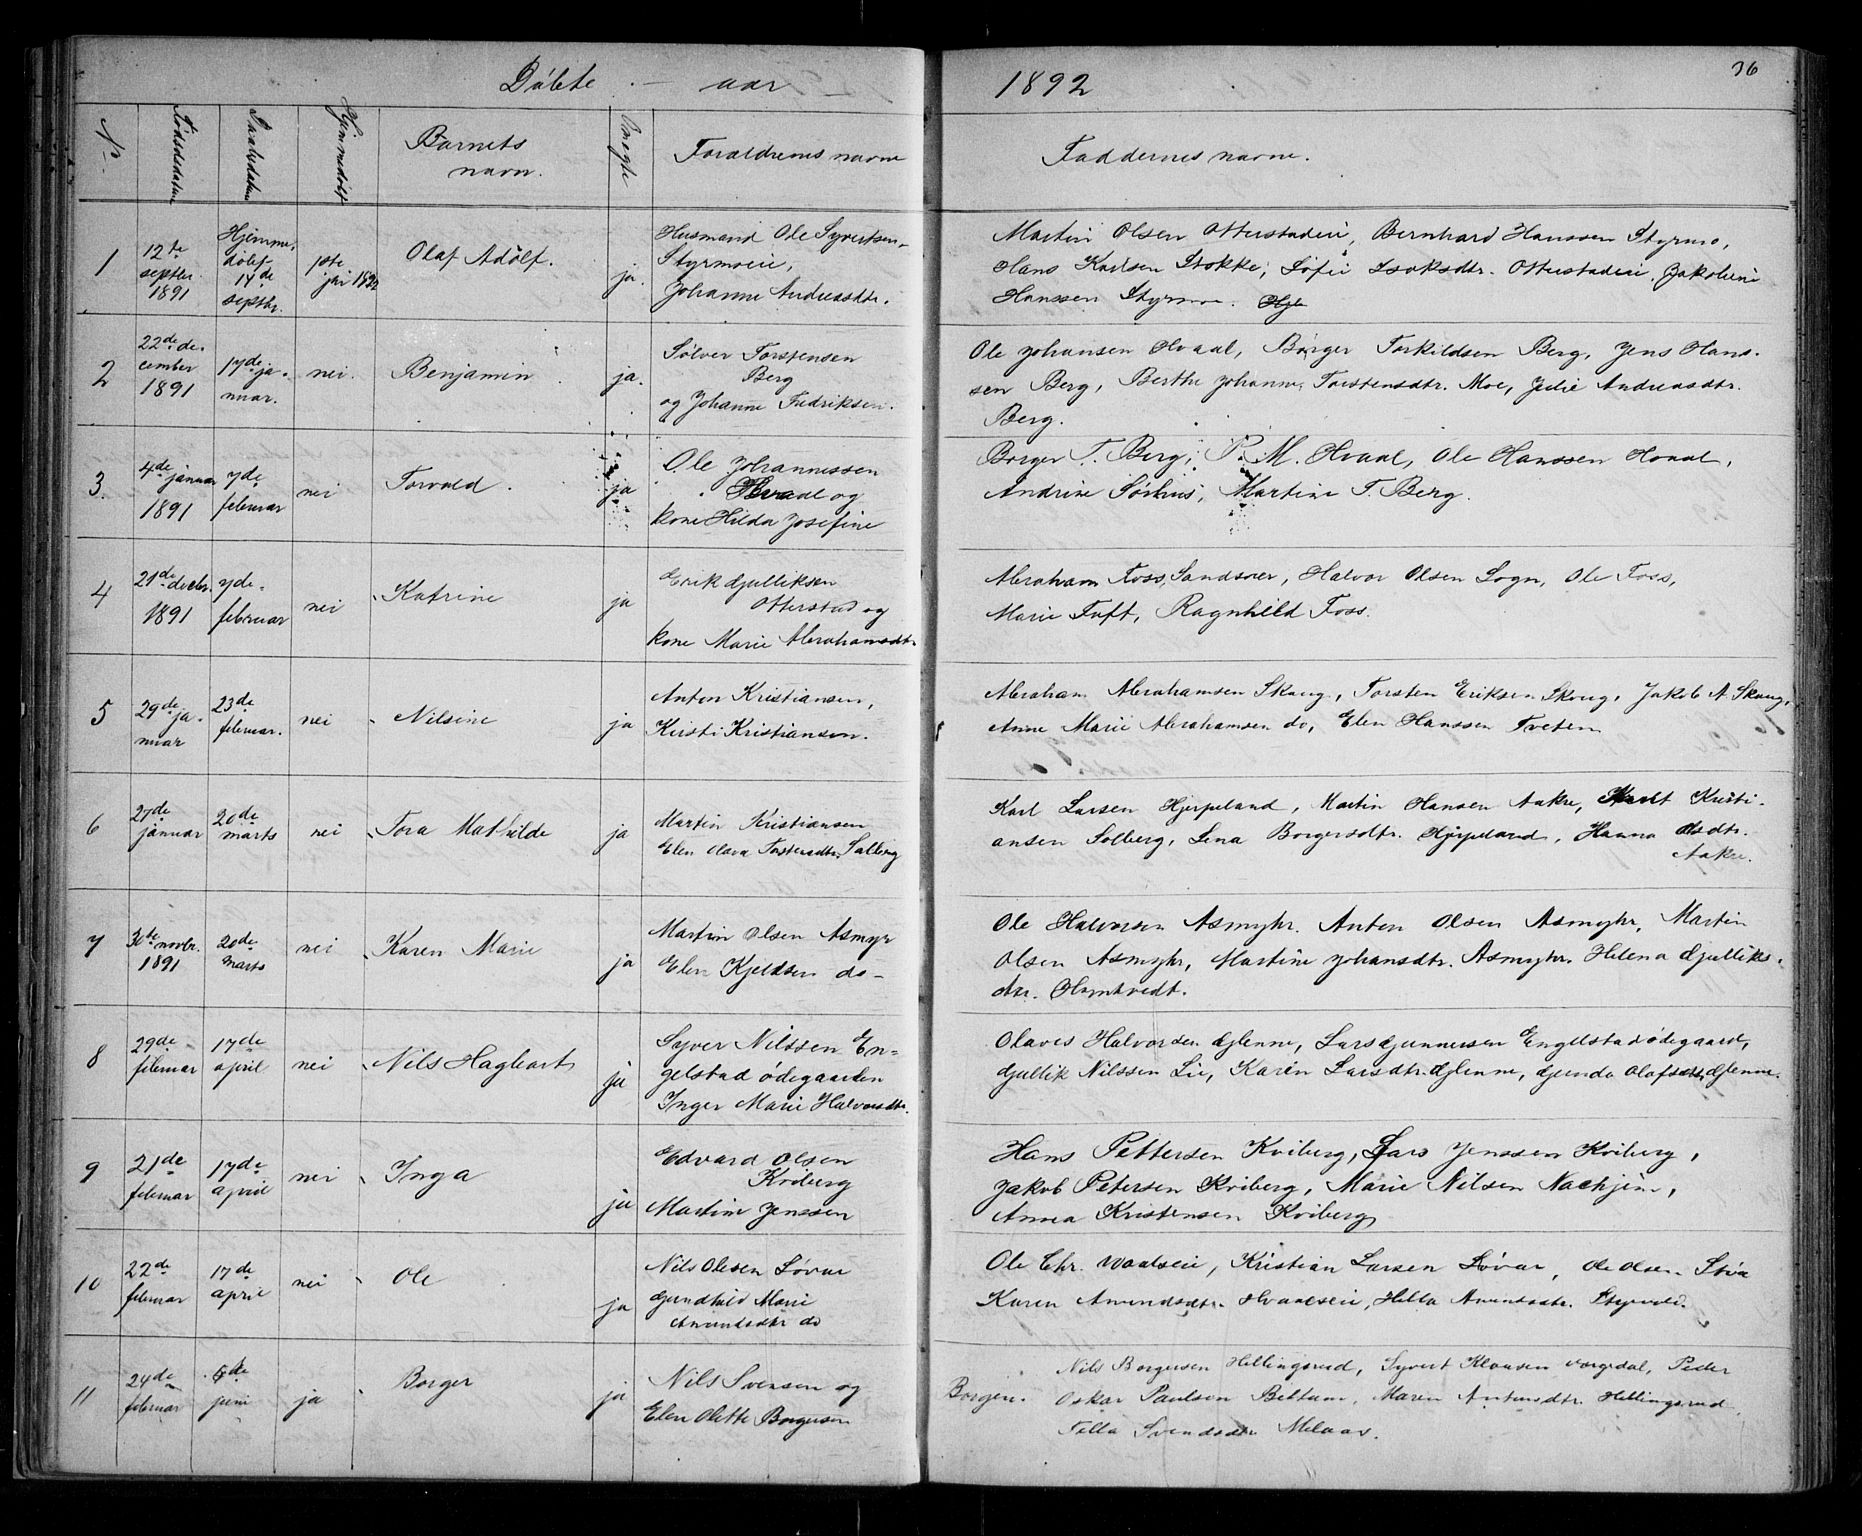 Döbte - aar 1892
36
No. Födselsdatum Daabsdatum Hjemmedöbt Barnets navn. Forældrenes navne Faddernes navne.
1 12te septbr. 1891 Hjemmedöbt 14de septbr. 1ste jan 1892 Olaf Adölf. ja.
Husmand Ole Syvertsen
Styrmoeie,
Johanne Andreasdtr.
Martin Olsen Otterstadeie, Bernhard Hanssen Styrmo,
Hans Karlsen Stokke, Sofie Isaksdtr. Otterstadeie, Jakobine
Hanssen Styrmoe.
2 22de december 1891 17de januar. nei. Benjamin ja.
Sölver Torstensen
Berg
og Johanne Fredriksen.
Ole Johansen Hvaal, Börger Torkildsen Berg, Jens Hans-
sen Berg, Berthe Johanne Torstensdtr. Moe, Julie Andreasdtr.
Berg.
3. 4de januar 1891 7de februar nei Torvald. ja
Ole Johannessen
Hvaal og
kone Hilda Josefine
Borger T. Berg, P. M. Hvaal, Ole Hanssen Hvaal,
Andrine Sörhus, Martine T. Berg.
4 21de decbr. 1891 7de februar nei Katrine ja
Erik Gulliksen
Otterstad og
kone Marie Abrahamsdtr.
Abraham Foss, Sandsver, Halvor Olsen Sogn, Ole Foss,
Marie Tuft, Ragnhild Foss.
5 29de januar 23de februar. nei Nilsine ja
Anton Kristiansen,
Kirsti Kristiansen.
Abraham Abrahamsen Skoug, Torsten Eriksen Skoug, Jakob A. Skoug,
Anne Marie Abrahamsen do, Elen Hanssen Tveten
6 27de januar 20de marts nei Tora Mathilde ja
Martin Kristiansen
Elen Olava Torstensdtr. Solberg
Karl Larsen Hjerpeland, Martin Hansen Aakre, Kristi-
ansen Solberg, Lina Borgersdtr. Hjerpeland, Hanna Olsdtr.
Aakre.
7 30te novbr. 1891 20de marts nei Karen Marie ja
Martin Olsen Asmyr
Elen Kjeldsen do-
Ole Halvorsen Asmyhr, Anton Olsen Asmyhr, Martin
Olsen Asmyhr, Martine Johansdtr. Asmyhr, Helena Gulliks-
dtr. Holmtvedt.
8 29de februar 17de april nei Nils Hagbart ja
Syver Nilssen En-
gelstad ödegaarden
Inger Marie Halvorsdtr.
Olaves Halvorsen Glenne, Lars Gunnersen Engelstadödegaard,
Gullik Nilssen Lie, Karen Larsdtr. Glenne, Gunda Olafsen Glenne.
9 21de februar 17de april nei Inga ja
Edvard Olsen
Kviberg
Martine Jenssen
Hans Pettersen Kviberg, Lars Jenssen Kviberg,
Jakob Petersen Kviberg, Marie Nilsen
Anna Kristensen Kviberg
10 22de februar 17de april nei Ole ja
Nils Olesen Sövar
Gundhild Marie
Anundsdtr do
Ole Chr. Kristian Larsen Sövar, Ole Olsen
Karen Anundsdtr. Hvaalseie, Hella Anundsdtr.
11 24de februar juni ja Borger ja
Nils Svensen og
Elen Olette Borgersen
Borgen.
Nils Borgersen Hellingsrud, Syvert Klausen Peder
Oskar Paulsen Beltum, Maren Hellingsrud,
Svendsdtr Milaas.